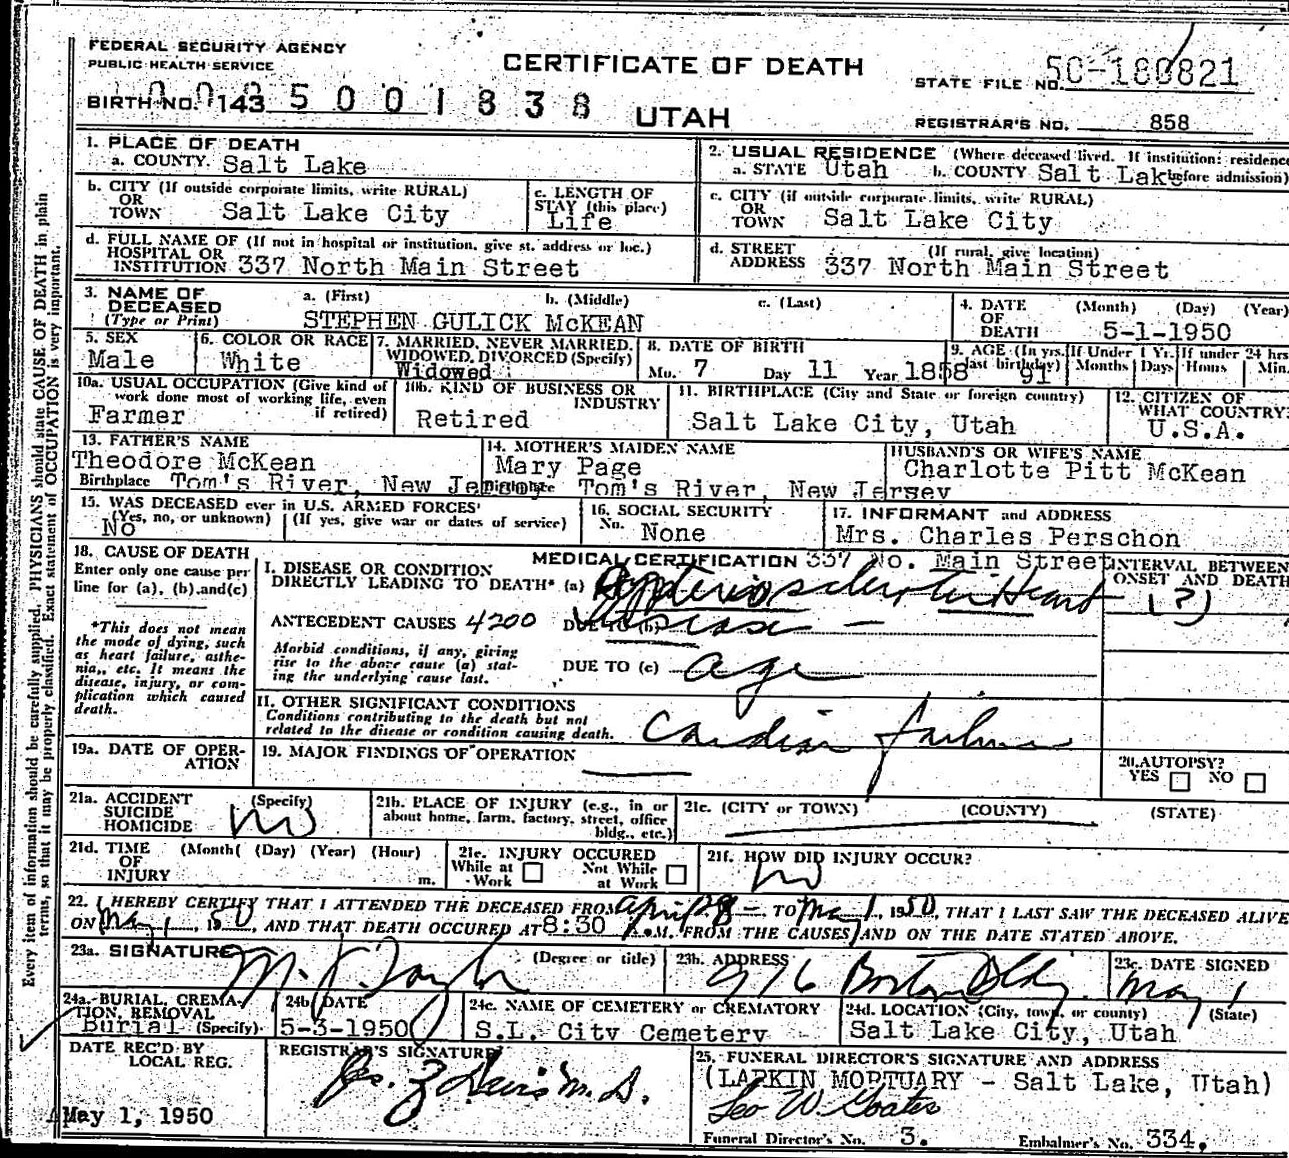 FEDERAL SECURITY AGENCY
PUBLIC HEALTH SERVICE
CERTIFICATE OF DEATH
STATE FILE NO. 50-180821
BIRTH NO. 143 5 0 0 1 8 3 8
UTAH
REGISTRAR'S NO. 858
1. PLACE OF DEATH
a. COUNTY. Salt Lake
2. USUAL RESIDENCE (Where deceased lived. If institution: residence before admission)
a. STATE Utah b. COUNTY Salt Lake
b. CITY (If outside corporate limits, write RURAL)
OR
TOWN Salt Lake City
c. LENGTH OF
STAY (this place)
Life
c. CITY (if outside corporate limits, write RURAL)
OR
TOWN Salt Lake City
d. FULL NAME OF (If not in hospital or institution, give st. address or loc.)
HOSPITAL OR
INSTITUTION 337 North Main Street
d. STREET (If rural, give location)
ADDRESS 337 North Main Street
3. NAME OF
DECEASED
(Type or Print)
a. (First) b. (Middle) c. (Last)
STEPHEN GULICK McKEAN
4. DATE (Month) (Day) (Year)
OF
DEATH 5-1-1950
5. SEX
Male
6. COLOR OR RACE
White
7. MARRIED, NEVER MARRIED,
WIDOWED, DIVORCED (Specify)
Widowed
8. DATE OF BIRTH
Mo. 7 Day 11 Year 1858
9. AGE (In yrs. last birthday) 91
If Under 1 Yr. If under 24 hrs
Months Days Hours Min.
10a. USUAL OCCUPATION (Give kind of
work done most of working life, even
if retired)
Farmer
10b. KIND OF BUSINESS OR
INDUSTRY
Retired
11. BIRTHPLACE (City and State or foreign country)
Salt Lake City, Utah
12. CITIZEN OF
WHAT COUNTRY?
U.S.A.
13. FATHER'S NAME
Theodore McKean
Birthplace Tom's River, New Jersey
14. MOTHER'S MAIDEN NAME
Mary Page
Birthplace Tom's River, New Jersey
HUSBAND'S OR WIFE'S NAME
Charlotte Pitt McKean
15. WAS DECEASED ever in U.S. ARMED FORCES?
(Yes, no, or unknown) (If yes, give war or dates of service)
No
16. SOCIAL SECURITY
No. None
17. INFORMANT and ADDRESS
Mrs. Charles Perschon
337 No. Main Street
18. CAUSE OF DEATH
Enter only one cause per
line for (a), (b), and (c)
*This does not mean
the mode of dying, such
as heart failure, asthe-
nia, etc. It means the
disease, injury, or com-
plication which caused
death.
MEDICAL CERTIFICATION
INTERVAL BETWEEN
ONSET AND DEATH
I. DISEASE OR CONDITION
DIRECTLY LEADING TO DEATH* (a) Arteriosclerotic Heart (?)
ANTECEDENT CAUSES 4200 DUE TO (b) Disease -
Morbid conditions, if any, giving
rise to the above cause (a) stat-
ing the underlying cause last.
DUE TO (c) age
II. OTHER SIGNIFICANT CONDITIONS
Conditions contributing to the death but not
related to the disease or condition causing death.
Cardiac failure
19a. DATE OF OPER-
ATION
19. MAJOR FINDINGS OF OPERATION
20. AUTOPSY?
YES NO
21a. ACCIDENT (Specify)
SUICIDE
HOMICIDE no
21b. PLACE OF INJURY (e.g., in or
about home, farm, factory, street, office
bldg., etc.)
21c. (CITY or TOWN) (COUNTY) (STATE)
21d. TIME (Month( (Day) (Year) (Hour)
OF
INJURY m.
21e. INJURY OCCURED
While at Work Not While at Work
21f. HOW DID INJURY OCCUR?
no
22. I HEREBY CERTIFY THAT I ATTENDED THE DECEASED FROM April 28 - TO May 1, 1950, THAT I LAST SAW THE DECEASED ALIVE
ON May 1, 1950, AND THAT DEATH OCCURED AT 8:30 .M. FROM THE CAUSES AND ON THE DATE STATED ABOVE.
23a. SIGNATURE (Degree or title)
23b. ADDRESS
976 Boston Bldg.
23c. DATE SIGNED
May 1
24a. BURIAL, CREMA-
TION, REMOVAL
Burial (Specify)
24b. DATE
5-3-1950
24c. NAME OF CEMETERY or CREMATORY
S.L. City Cemetery
24d. LOCATION (City, town, or county) (State)
Salt Lake City, Utah
DATE REC'D BY
LOCAL REG.
May 1, 1950
REGISTRAR'S SIGNATURE
M.D.
25. FUNERAL DIRECTOR'S SIGNATURE AND ADDRESS
(LARKIN MORTUARY - Salt Lake, Utah)
Leo W. Goates
Funeral Director's No. 3. Embalmer's No. 334.
Every item of information should be carefully supplied. PHYSICIANS should state CAUSE OF DEATH in plain
terms, so that it may be properly classified. Exact statement of OCCUPATION is very important.